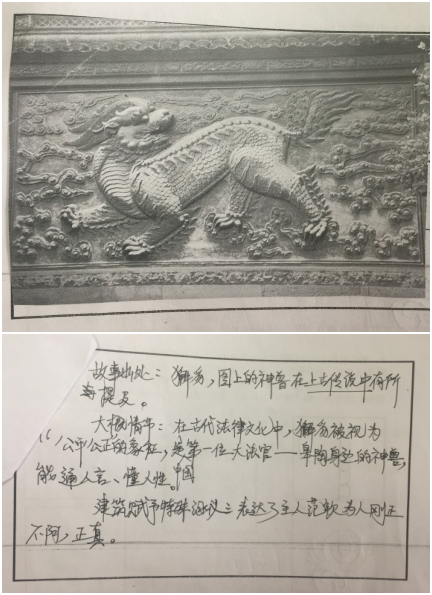 故事出处：獬豸，图上的神兽在上古传说中有所
提及。
大概情节：在古代法律文化中，獬豸被视为
公平公正的象征，是第一位大法官——皋陶身边的神兽，
能通人言、懂人性。
中国
建筑赋予特殊涵义：表达了主人范钦为人刚正
不阿，正真。